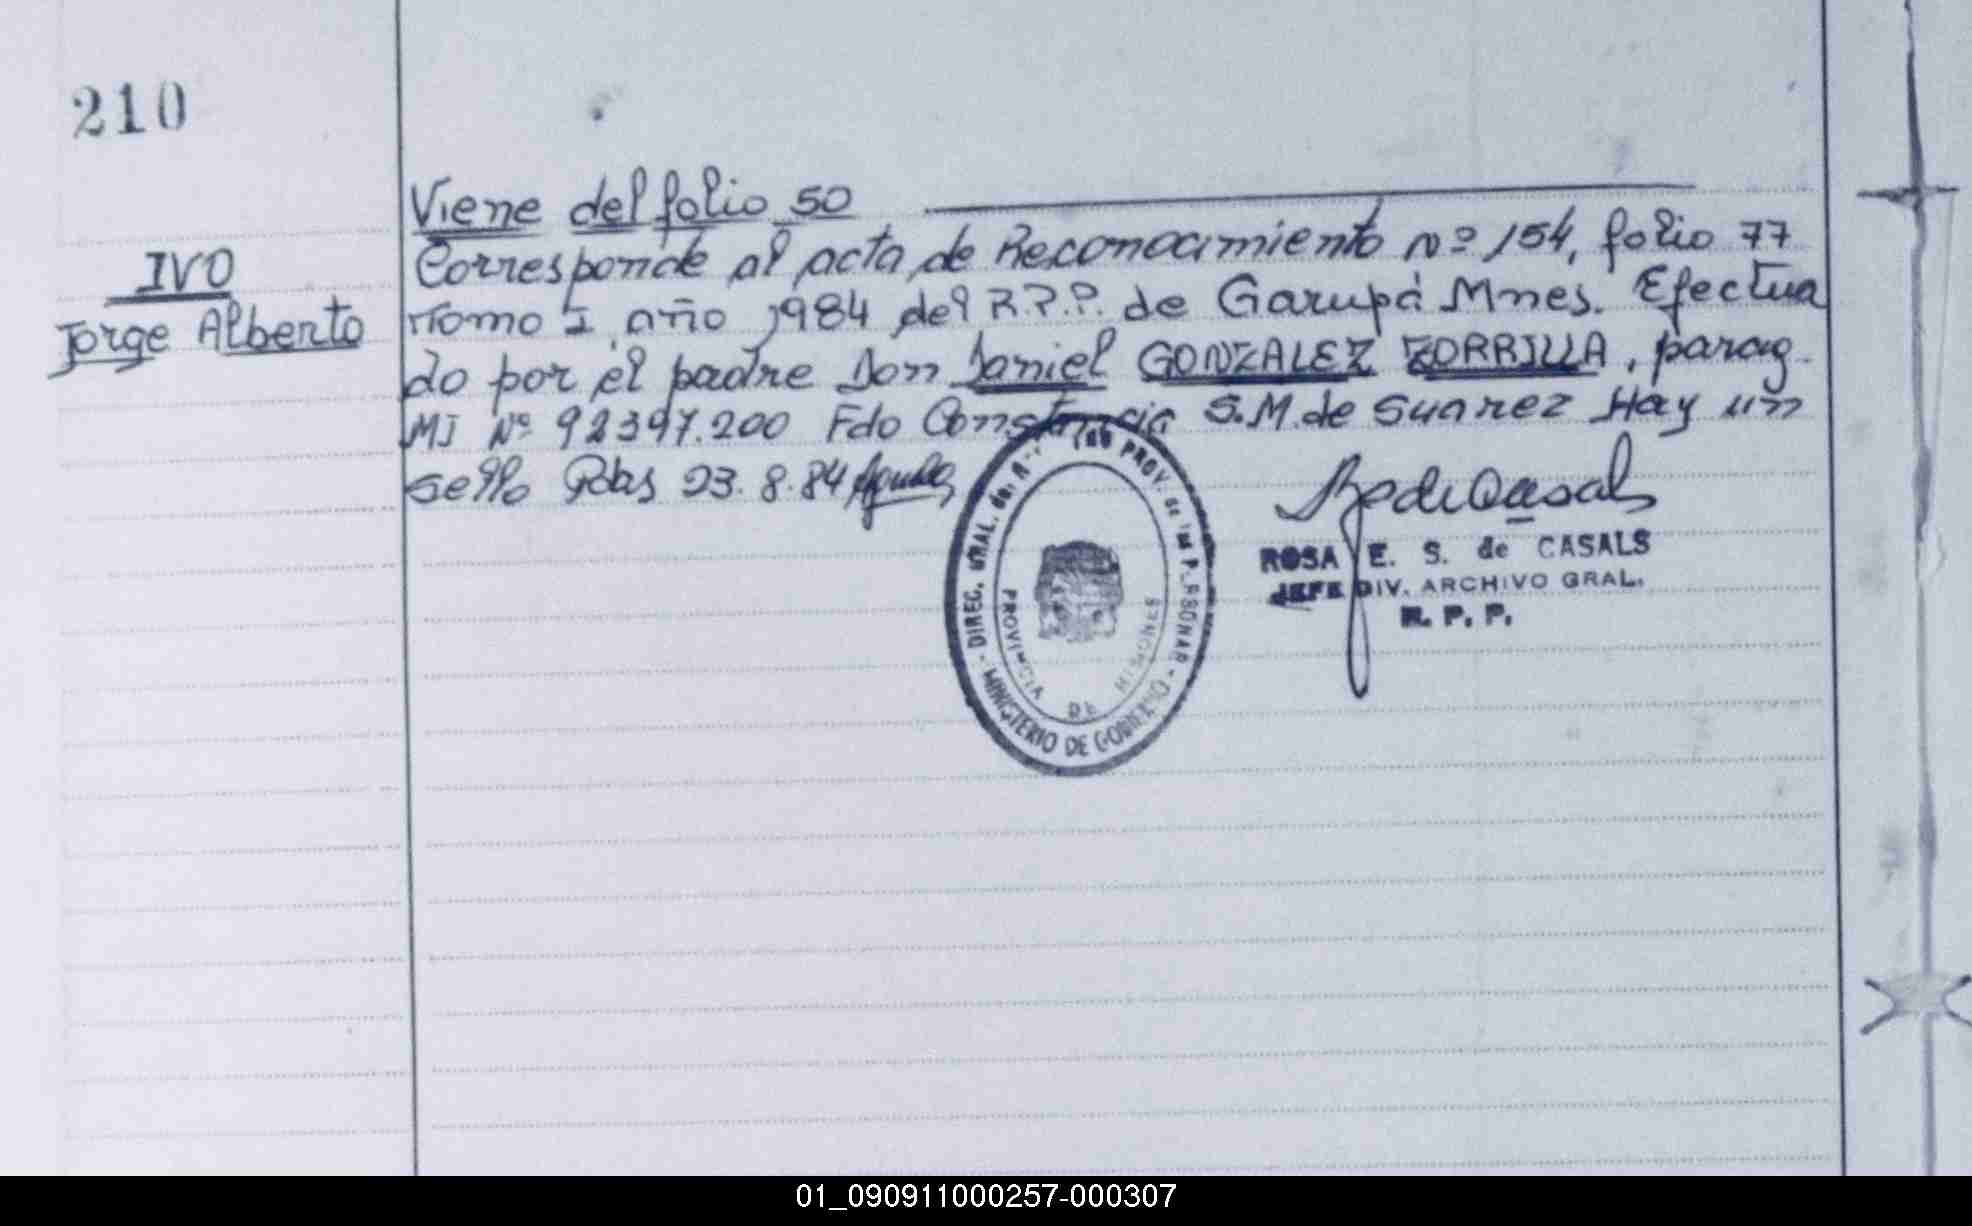 210
Viene del folio 50
IVO
Jorge Alberto
Corresponde al acta de Reconocimiento Nº 154, folio 77
Tomo I año 1984 del R.P.P. de Garupá Mnes. Efectua
do por el padre Don Daniel GONZALEZ ZORRILLA, parag.
MI Nº 92397.200 Fdo Constancia S.M. de Suarez Hay un
sello Pdas 23.8.84
ROSA E. S. de CASALS
JEFE DIV. ARCHIVO GRAL.
R. P. P.
DIREC. GRAL. del PROV. de las PERSONAS
MINISTERIO DE GOBIERNO
PROVINCIA DE MISIONES
01_090911000257-000307